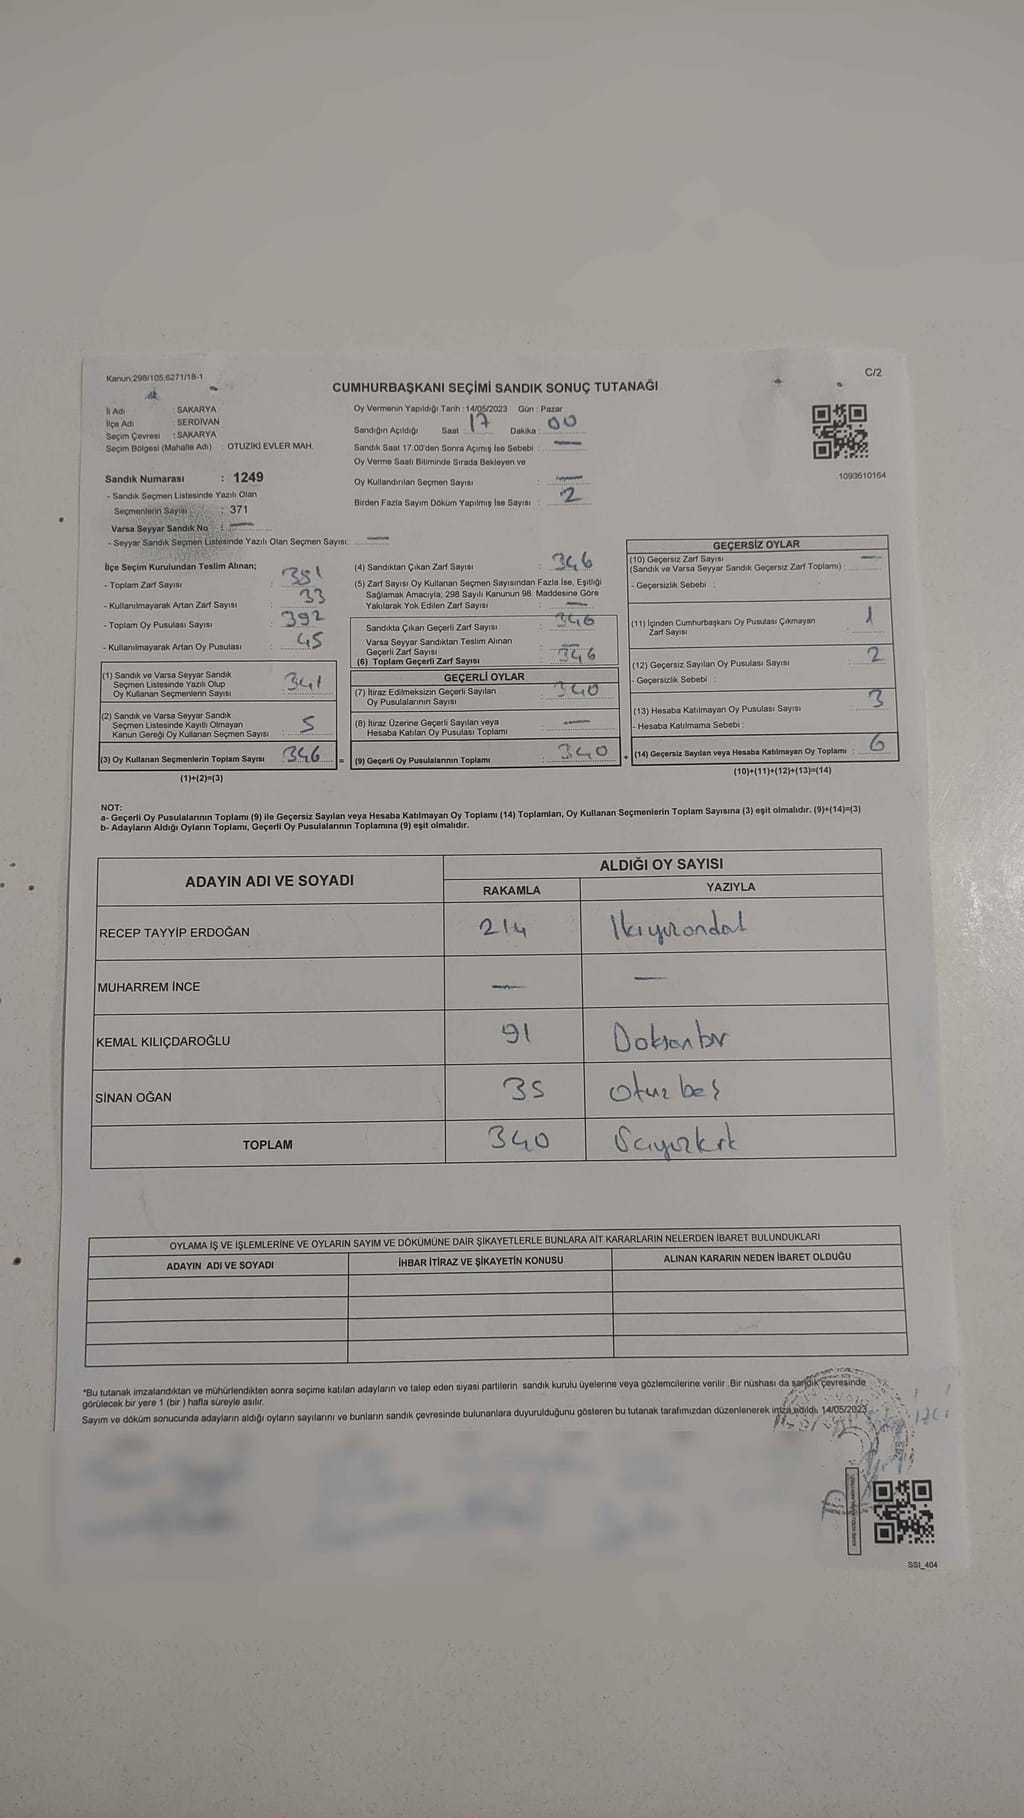 Kanun;298/105,6271/18-1
C/2
CUMHURBAŞKANI SEÇİMİ SANDIK SONUÇ TUTANAĞI
İl Adı : SAKARYA
İlçe Adı : SERDİVAN
Seçim Çevresi : SAKARYA
Seçim Bölgesi (Mahalle Adı) OTUZİKİ EVLER MAH.
Oy Vermenin Yapıldığı Tarih : 14/05/2023 Gün : Pazar
Sandığın Açıldığı Saat : 17 Dakika : 00
Sandık Saat 17.00'den Sonra Açımış İse Sebebi : —
Oy Verme Saati Bitiminde Sırada Bekleyen ve
Oy Kullandırılan Seçmen Sayısı : —
Birden Fazla Sayım Döküm Yapılmış İse Sayısı : 2
1093610164
Sandık Numarası : 1249
- Sandık Seçmen Listesinde Yazılı Olan
Seçmenlerin Sayısı : 371
Varsa Seyyar Sandık No : —
- Seyyar Sandık Seçmen Listesinde Yazılı Olan Seçmen Sayısı: —
İlçe Seçim Kurulundan Teslim Alınan;
- Toplam Zarf Sayısı : 381
- Kullanılmayarak Artan Zarf Sayısı : 33
- Toplam Oy Pusulası Sayısı : 392
- Kullanılmayarak Artan Oy Pusulası : 45
(1) Sandık ve Varsa Seyyar Sandık
Seçmen Listesinde Yazılı Olup
Oy Kullanan Seçmenlerin Sayısı : 341
(2) Sandık ve Varsa Seyyar Sandık
Seçmen Listesinde Kayıtlı Olmayan
Kanun Gereği Oy Kullanan Seçmen Sayısı : 5
(3) Oy Kullanan Seçmenlerin Toplam Sayısı : 346 =
(1)+(2)=(3)
(4) Sandıktan Çıkan Zarf Sayısı : 346
(5) Zarf Sayısı Oy Kullanan Seçmen Sayısından Fazla İse, Eşitliği
Sağlamak Amacıyla; 298 Sayılı Kanunun 98. Maddesine Göre
Yakılarak Yok Edilen Zarf Sayısı : —
Sandıkta Çıkan Geçerli Zarf Sayısı : 346
Varsa Seyyar Sandıktan Teslim Alınan
Geçerli Zarf Sayısı : —
(6) Toplam Geçerli Zarf Sayısı : 346
GEÇERLİ OYLAR
(7) İtiraz Edilmeksizin Geçerli Sayılan
Oy Pusulalarının Sayısı : 340
(8) İtiraz Üzerine Geçerli Sayılan veya
Hesaba Katılan Oy Pusulası Toplamı : —
(9) Geçerli Oy Pusulalarının Toplamı : 340 +
GEÇERSİZ OYLAR
(10) Geçersiz Zarf Sayısı
(Sandık ve Varsa Seyyar Sandık Geçersiz Zarf Toplamı) : —
- Geçersizlik Sebebi :
(11) İçinden Cumhurbaşkanı Oy Pusulası Çıkmayan
Zarf Sayısı : 1
(12) Geçersiz Sayılan Oy Pusulası Sayısı : 2
- Geçersizlik Sebebi :
(13) Hesaba Katılmayan Oy Pusulası Sayısı : 3
- Hesaba Katılmama Sebebi :
(14) Geçersiz Sayılan veya Hesaba Katılmayan Oy Toplamı : 6
(10)+(11)+(12)+(13)=(14)
NOT:
a- Geçerli Oy Pusulalarının Toplamı (9) ile Geçersiz Sayılan veya Hesaba Katılmayan Oy Toplamı (14) Toplamları, Oy Kullanan Seçmenlerin Toplam Sayısına (3) eşit olmalıdır. (9)+(14)=(3)
b- Adayların Aldığı Oyların Toplamı, Geçerli Oy Pusulalarının Toplamına (9) eşit olmalıdır.
ADAYIN ADI VE SOYADI
ALDIĞI OY SAYISI
RAKAMLA YAZIYLA
RECEP TAYYİP ERDOĞAN 214 İkiyüzondört
MUHARREM İNCE — —
KEMAL KILIÇDAROĞLU 91 Doksanbir
SİNAN OĞAN 35 otuz beş
TOPLAM 340 Üçyüzkırk
OYLAMA İŞ VE İŞLEMLERİNE VE OYLARIN SAYIM VE DÖKÜMÜNE DAİR ŞİKAYETLERLE BUNLARA AİT KARARLARIN NELERDEN İBARET BULUNDUKLARI
ADAYIN ADI VE SOYADI İHBAR İTİRAZ VE ŞİKAYETİN KONUSU ALINAN KARARIN NEDEN İBARET OLDUĞU
*Bu tutanak imzalandıktan ve mühürlendikten sonra seçime katılan adayların ve talep eden siyasi partilerin sandık kurulu üyelerine veya gözlemcilerine verilir .Bir nüshası da sandık çevresinde
görülecek bir yere 1 (bir ) hafta süreyle asılır.
Sayım ve döküm sonucunda adayların aldığı oyların sayılarını ve bunların sandık çevresinde bulunanlara duyurulduğunu gösteren bu tutanak tarafımızdan düzenlenerek imza edildi. 14/05/2023
SSI_404